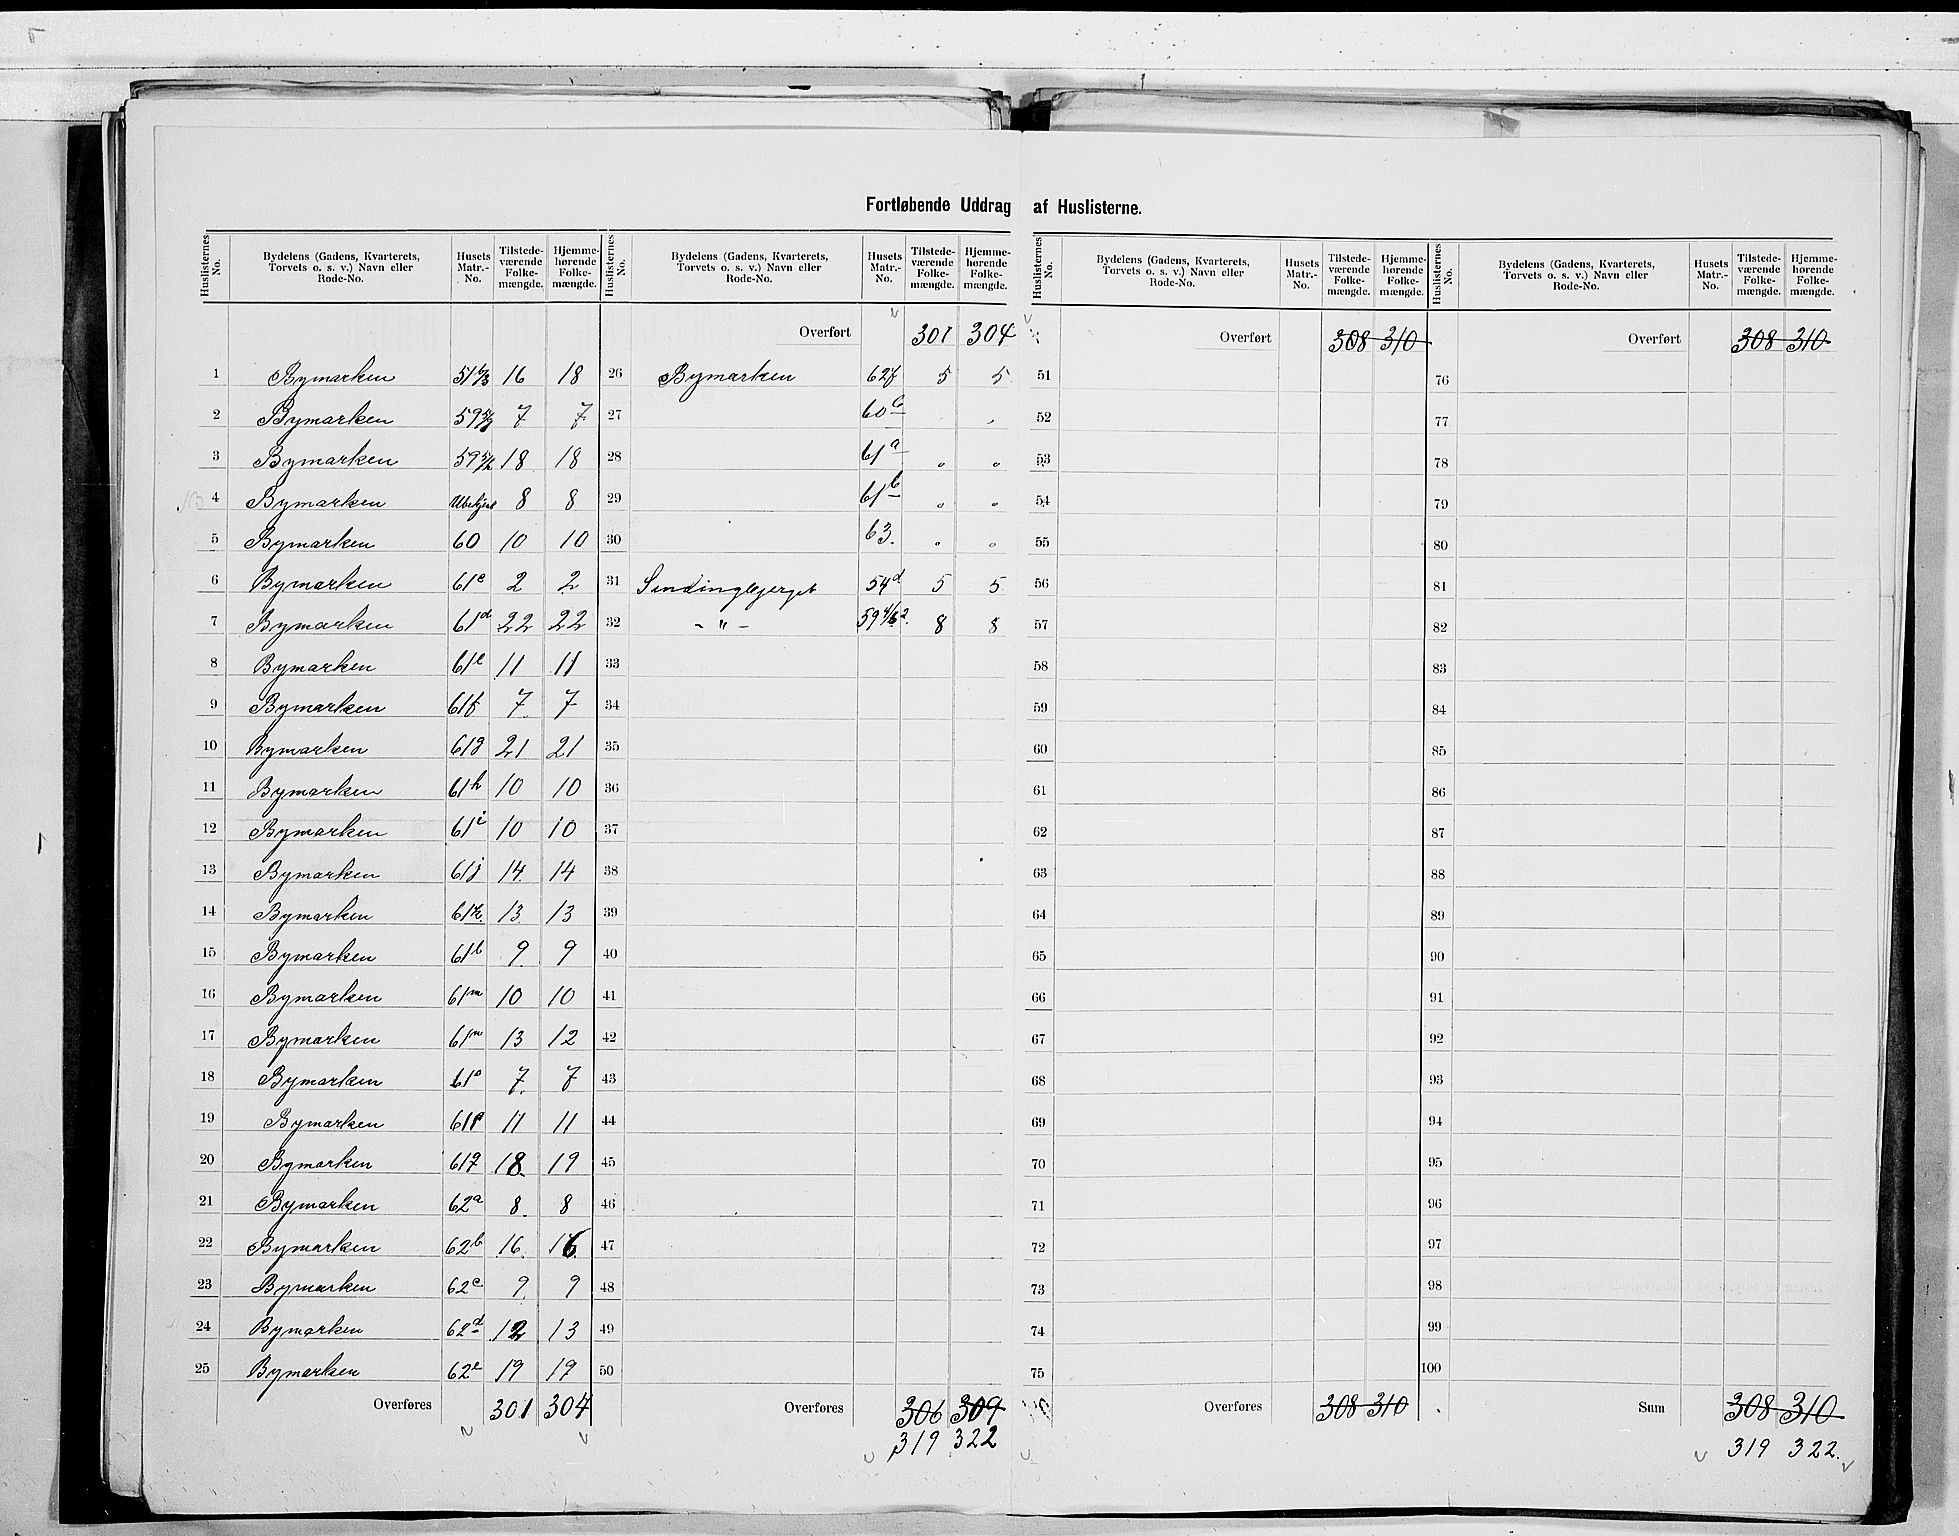 Fortløbende Uddrag af Huslisterne.
Huslisternes No. Bydelens (Gadens, Kvarterets, Torvets o. s. v.) Navn eller Rode-No. Husets Matr.-No. Tilstede-værende Folke-mængde. Hjemme-hørende Folke-mængde.
1 Bymarken 16 18
2 Bymarken 7 7
3 Bymarken 18 18
4 Bymarken 8 8
5 Bymarken 60 10 10
6 Bymarken 61c 2 2
7 Bymarken 61d 22 22
8 Bymarken 61e 11 11
9 Bymarken 61f 7 7
10 Bymarken 61g 21 21
11 Bymarken 61h 10 10
12 Bymarken 61i 10 10
13 Bymarken 61j 14 14
14 Bymarken 61k 13 13
15 Bymarken 9 9
16 Bymarken 61m 10 10
17 Bymarken 13 12
18 Bymarken 61o 7 7
19 Bymarken 61p 11 11
20 Bymarken 61q 18 19
21 Bymarken 62a 8 8
22 Bymarken 62b 16 16
23 Bymarken 62c 9 9
24 Bymarken 62d 12 13
25 Bymarken 62e 19 19
Overføres 301 304
Huslisternes No. Bydelens (Gadens, Kvarterets, Torvets o. s. v.) Navn eller Rode-No. Husets Matr.-No. Tilstede-værende Folke-mængde. Hjemme-hørende Folke-mængde.
Overført 301 304
26 Bymarken 62f 5 5
27
28 61a
29 61b
30 63.
31 54d 5 5
32 - " - 8 8
33
34
35
36
37
38
39
40
41
42
43
44
45
46
47
48
49
50
Overføres 306 309
319 322
Huslisternes No. Bydelens (Gadens, Kvarterets, Torvets o. s. v.) Navn eller Rode-No. Husets Matr.-No. Tilstede-værende Folke-mængde. Hjemme-hørende Folke-mængde.
Overført 308 310
51
52
53
54
55
56
57
58
59
60
61
62
63
64
65
66
67
68
69
70
71
72
73
74
75
Overføres 308 310
Huslisternes No. Bydelens (Gadens, Kvarterets, Torvets o. s. v.) Navn eller Rode-No. Husets Matr.-No. Tilstede-værende Folke-mængde. Hjemme-hørende Folke-mængde.
Overført 308 310
76
77
78
79
80
81
82
83
84
85
86
87
88
89
90
91
92
93
94
95
96
97
98
99
100
Sum 308 310
319 322.